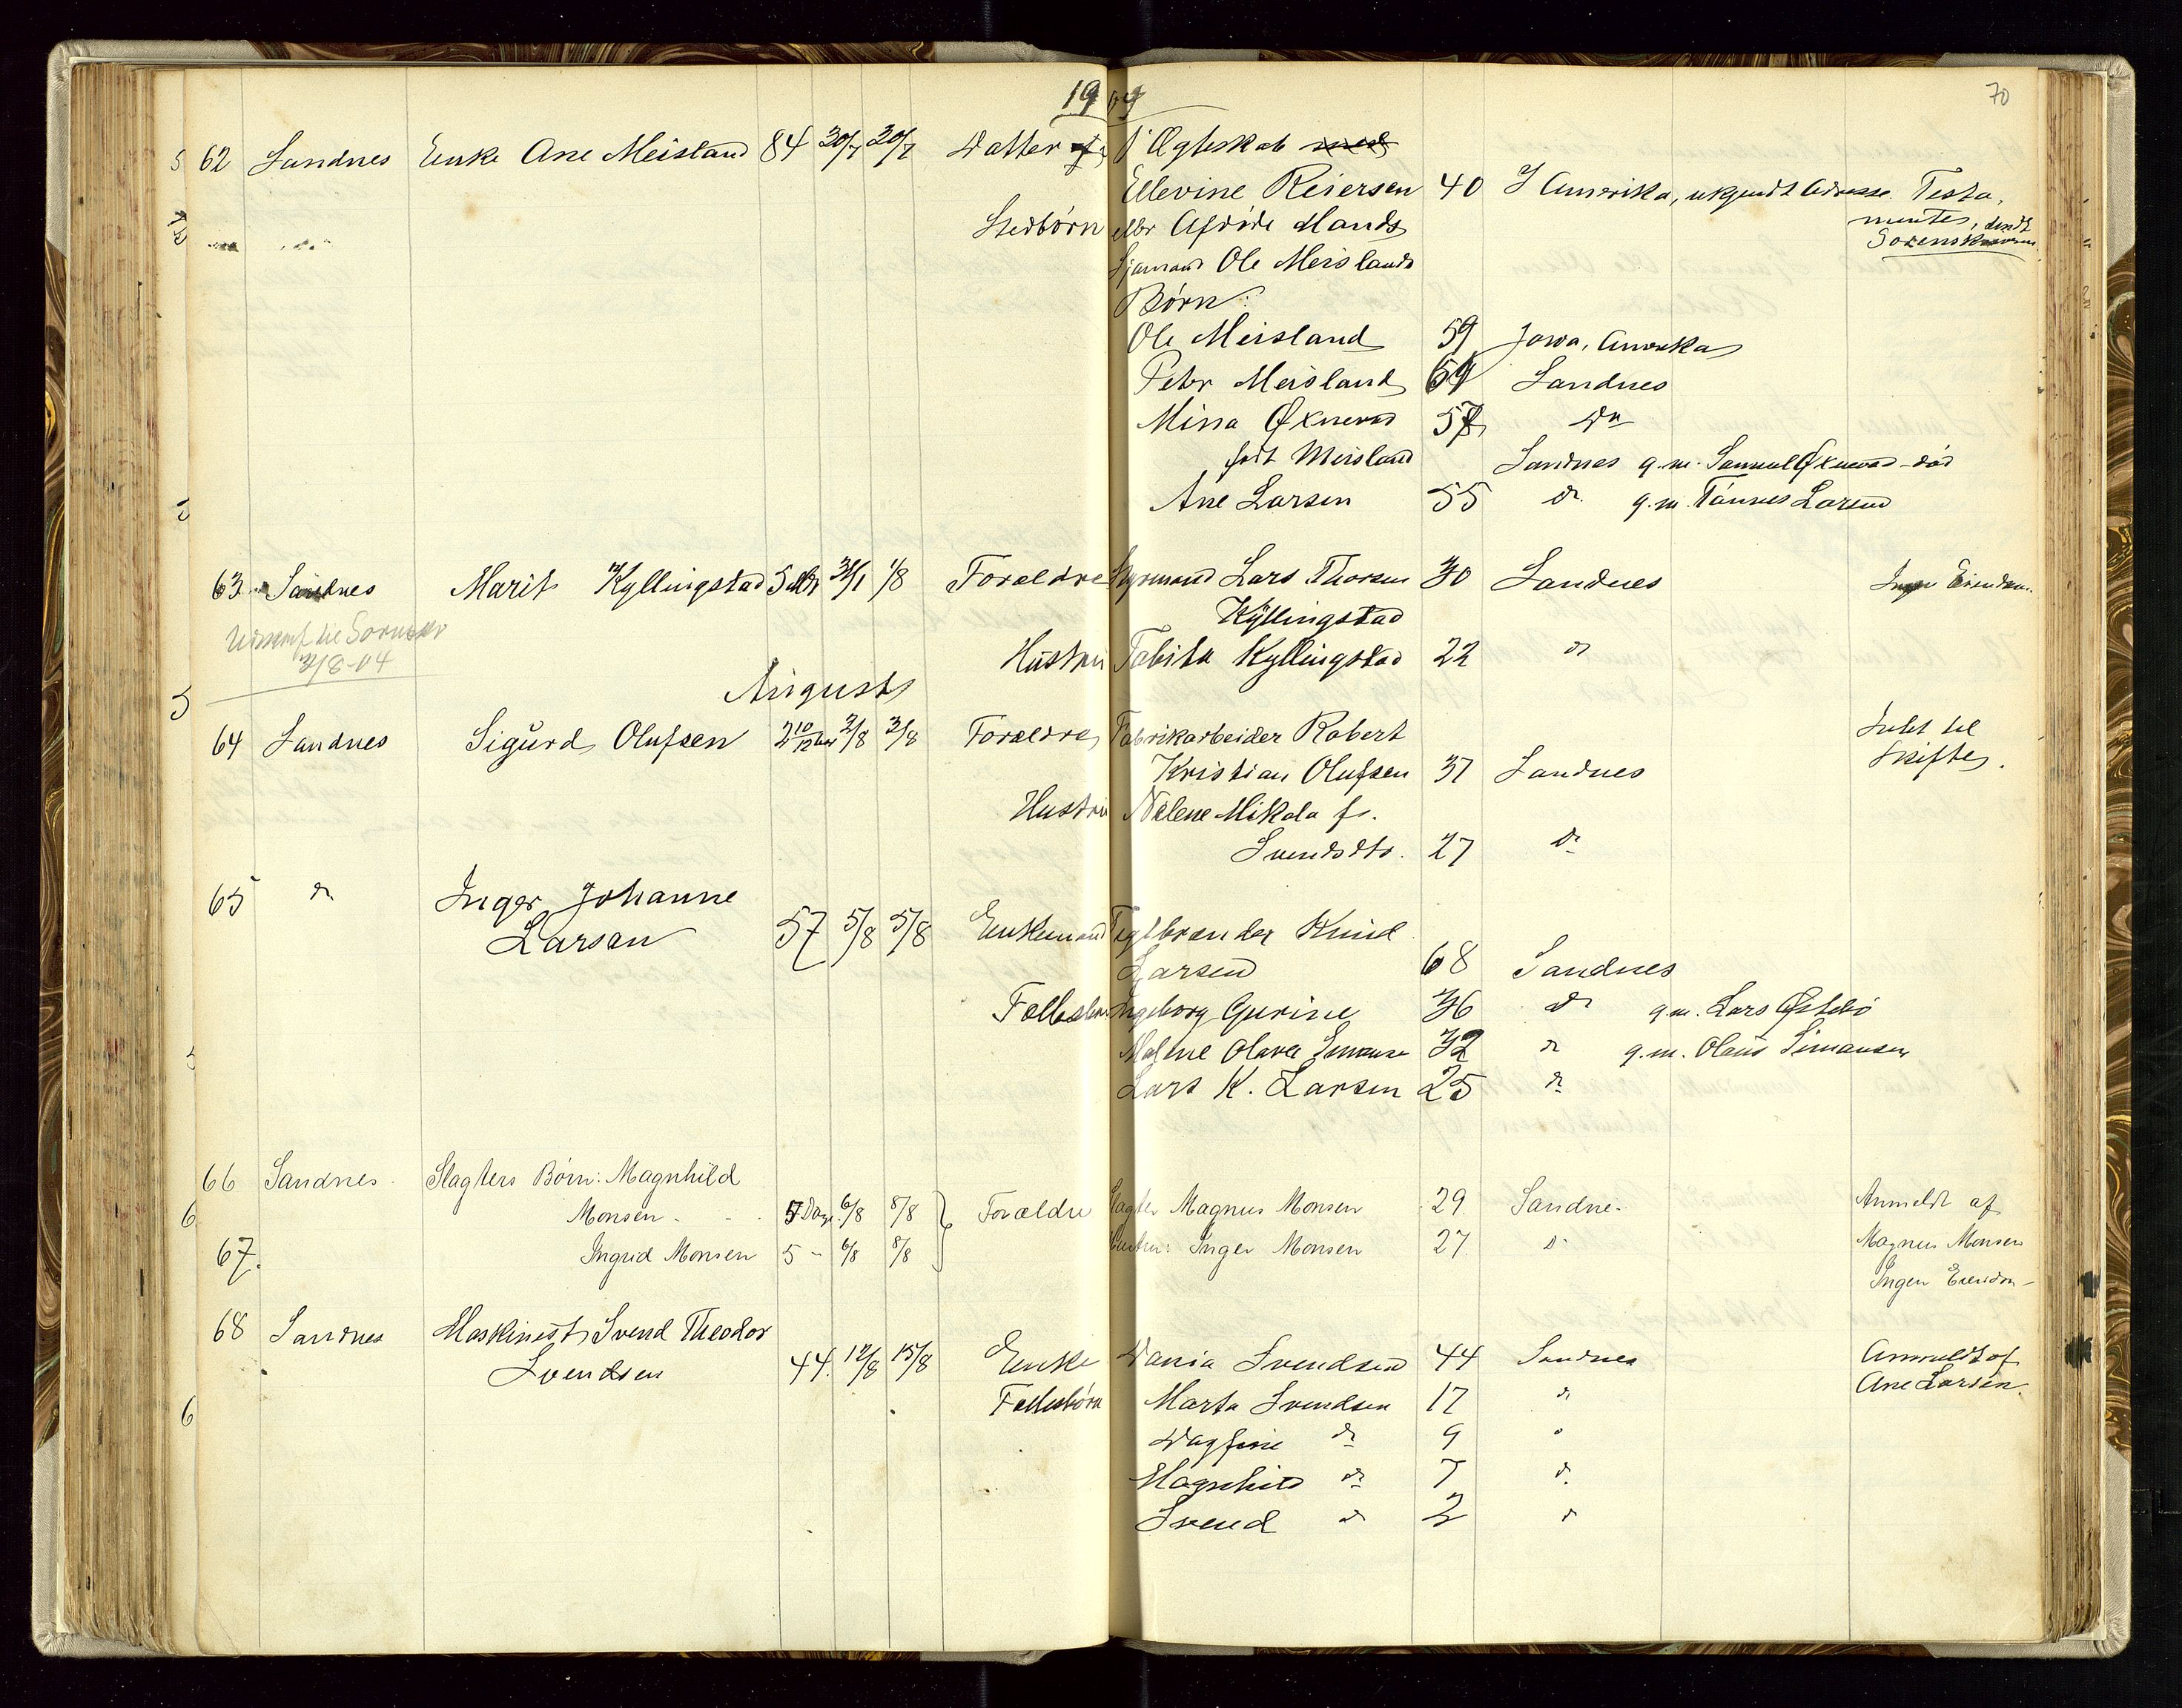 1904
70
62 Sandnes Enke Ane Meisland 84 30/7 30/7 Datter af 1' Ægteskab med
Ellevine Reiersen 40 I Amerika, ukjendt Adresse. Testa-
mente, sendt
Sorenskriveren
Stedbörn eller Afdöde Mands
Sjømand Ole Meislands
Börn:
Ole Meisland 59 Jowa, Amerika
Peter Meisland 64 Sandnes
Mina Øxnevad 57 Do
født Meisland Sandnes g.m. Samuel Øxnevad - död
Ane Larsen 55 do g.m. Tönnes Larsen
63 Sandnes Marit Kyllingstad 5 Mdr 31/7 1/8 Forældre Styrmand Lars Thorsen 30 Sandnes Ingen Eiendom
Kyllingstad
2/8-04
Hustru Tabita Kyllingstad 22 do
August
64 Sandnes Sigurd Olufsen 2 10/12 Aar 2/8 3/8 Forældre Fabrikarbeider Robert
Kristian Olufsen 37 Sandnes
Intet til
Skifte.
Hustru Nelene Mikala f.
Svendsdtr. 27 do
65 do Inger Johanne
Larsen 57 5/8 5/8 Enkemand Teglbrænder Knud
Larsen 68 Sandnes
Fællesbørn Ingeborg Gurine 36 do g.m. Lars Østebö
Malene Olava Simonsen 32 do g.m. Olaus Simonsen
Lars K. Larsen 25 do
66 Sandnes. Slagters Børn: Magnhild
Monsen 5 Dage 6/8 8/8 Forældre Slagter Magnus Monsen 29. Sandnes.
67. Ingrid Monsen 5 " 6/8 8/8 Hustru: Inger Monsen 27 do
Anmeldt af
Magnus Monsen
Ingen Eiendom
68 Sandnes Maskinist Svend Theodor
Svendsen 44. 12/8 15/8 Enke Dania Svendsen 44 Sandnes
Anmeldt af
Ane Larsen.
Fællesbörn Marta Svendsen 17 do
Dagfine do 9 "
Magnhild do 7 do
Svend do 2 do